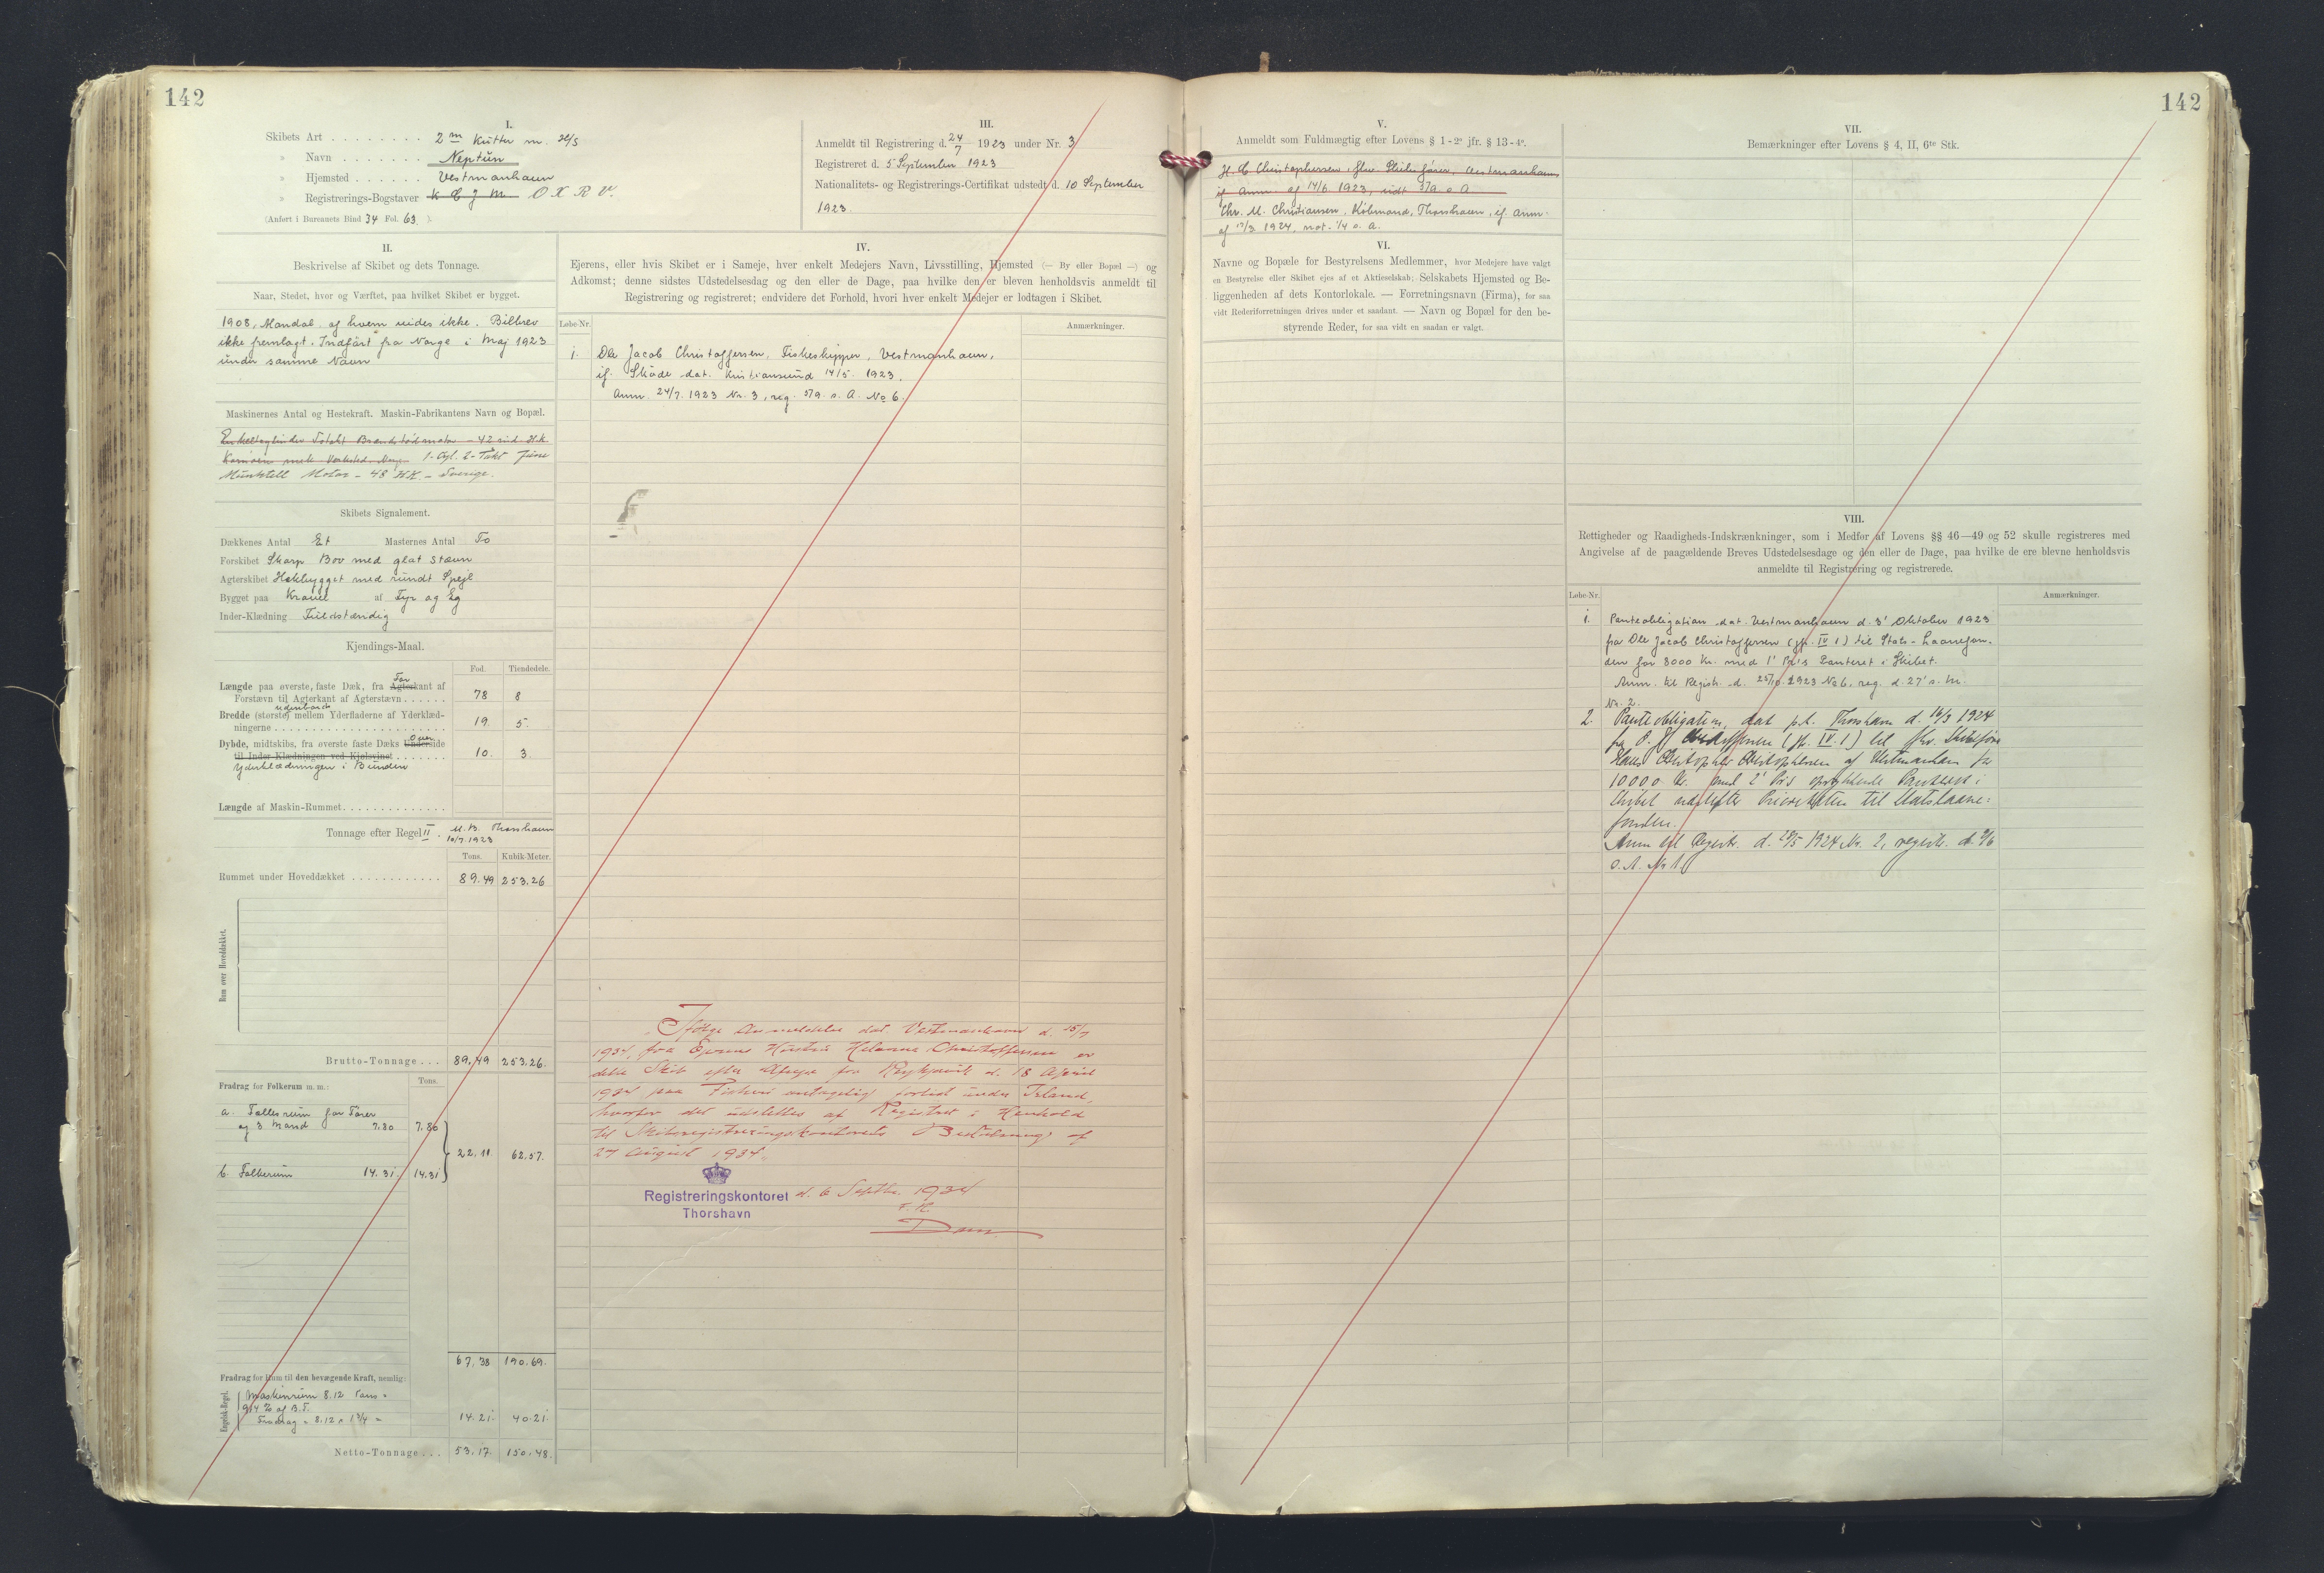 142
I.
Skibets Art . . . . . . . . 2 m Kutter m. Hj/S
» Navn . . . . . . . Neptun
» Hjemsted . . . . . . Vestmanhavn
» Registrerings-Bogstaver K C J M O X R V.
(Anført i Bureauets Bind 34 Fol. 63 ).
III.
Anmeldt til Registrering d. 24/7 1923 under Nr. 3
Registreret d. 5 September 1923
Nationalitets- og Registrerings-Certifikat udstedt d. 10 September
1923.
II.
Beskrivelse af Skibet og dets Tonnage.
Naar, Stedet, hvor og Værftet, paa hvilket Skibet er bygget.
1908, Mandal af hvem vides ikke. Bilbrev
ikke fremlagt. Indført fra Norge i Maj 1923
under samme Navn
Maskinernes Antal og Hestekraft. Maskin-Fabrikantens Navn og Bopæl.
Enkeltcylindre Totakt - 42 ind. H.K.
mek. Verksted. Norge 1-Cyl. 2-Takt June
Munktell Motor - 48 HK. - Sverige.
Skibets Signalement.
Dækkenes Antal Et Masternes Antal To
Forskibet Skarp Bov med glat Stævn
Agterskibet Hekbygget med rundt Spejl
Bygget paa Kravel af Fyr og Eg
Inder-Klædning Fuldstændig
Kjendings-Maal.
Fod. Tiendedele.
For
Længde paa øverste, faste Dæk, fra Agterkant af
Forstævn til Agterkant af Agterstævn . . . . . . 78 8
udenbords
Bredde (største) mellem Yderfladerne af Yderklæd-
ningerne . . . . . . . . . . . . . . . . . . . . . . . 19 5.
Over
Dybde, midtskibs, fra øverste faste Dæks Underside
til Inder-Klædningen ved Kjølsvinet . . . . . . . 10. 3.
Yderklædningen i Bunden
Længde af Maskin-Rummet. . . . . . . . . . . . . .
Tonnage efter Regel II. M. B. Thorshavn
10/7 1923
Tons. Kubik-Meter.
Rummet under Hoveddækket . . . . . . . . . . . . 89.49 253.26
Rum over Hoveddækket.
Brutto-Tonnage . . . 89.49 253.26.
Fradrag for Folkerum m. m.: Tons.
a. Fællesrum for Fører
og 3 Mand 7.80 7.80
22.11 62.57.
b. Folkerum 14.31 14.31
67.38 190.69.
Fradrag for Rum til den bevægende Kraft, nemlig:
Engelsk-Regel.
Maskinrum 8.12 Tons =
9.14 % af B.T.
Fradrag = 8.12 × 1 3/4 = 14.21. 40.21.
Netto-Tonnage . . . 53.17. 150.48.
IV.
Ejerens, eller hvis Skibet er i Sameje, hver enkelt Medejers Navn, Livsstilling, Hjemsted (— By eller Bopæl —) og
Adkomst; denne sidstes Udstedelsesdag og den eller de Dage, paa hvilke den er bleven henholdsvis anmeldt til
Registrering og registreret; endvidere det Forhold, hvori hver enkelt Medejer er lodtagen i Skibet.
Løbe-Nr. Anmærkninger.
1. Ole Jacob Christoffersen, Fiskeskipper, Vestmanhavn,
if. Skøde dat. Kristiansund 14/5 1923.
Anm. 24/7 1923 Nr. 3, reg. 5/9 s. A. No 6.
Ifølge Anmeldelse dat. Vestmanhavn d. 15/7
1934, fra Ejerens Hustru Helene Christoffersen er
dette Skib efter Afrejse fra Reykjavik d. 18 April
1934 paa Fiskeri antagelig forlist under Island,
hvorfor det udslettes af Registret i Henhold
til Skibsregistreringskontorets Bestemmelse af
24 August 1934.
Registreringskontoret d. 6 Septbr. 1934
Thorshavn
F. N.
Dam
142
V.
Anmeldt som Fuldmægtig efter Lovens § 1 - 2° jfr. § 13 - 4°.
H. C Christophersen, fhv. Skibsfører, Vestmanhavn
if Anm af 14/6 1923, 5/9 s. A.
Chr. M. Christiansen, Købmand, Thorshavn, if. anm.
af 17/3 1924, not. 1/4 s. a.
VI.
Navne og Bopæle for Bestyrelsens Medlemmer, hvor Medejere have valgt
en Bestyrelse eller Skibet ejes af et Aktieselskab; Selskabets Hjemsted og Be-
liggenheden af dets Kontorlokale. — Forretningsnavn (Firma), for saa
vidt Rederiforretningen drives under et saadant. — Navn og Bopæl for den be-
styrende Reder, for saa vidt en saadan er valgt.
VII.
Bemærkninger efter Lovens § 4, II, 6te Stk.
VIII.
Rettigheder og Raadigheds-Indskrænkninger, som i Medfør af Lovens §§ 46—49 og 52 skulle registreres med
Angivelse af de paagældende Breves Udstedelsesdage og den eller de Dage, paa hvilke de ere blevne henholdsvis
anmeldte til Registrering og registrerede.
Løbe-Nr. Anmærkninger.
1. Panteobligation dat. Vestmanhavn d. 3' Oktober 1923
fra Ole Jacob Christoffersen (jfr. IV 1) til Stats-Laanefon-
den for 8000 Kr. med 1' Pr's Panteret i Skibet.
Anm. til Registr. d. 25/10 1923 No 6, reg. d. 27' s. M.
Nr. 2.
2. Panteobligation, dat p.t. Thorshavn d. 16/3 1924
fra O. J. Christoffersen (jfr. IV. 1) til fhv. Skibsfører
Hans Christopher Christophersen af Vestmanhavn for
10000 Kr. med 2' Pr's oprykkende Panteret i
Skibet næstefter Prioriteten til Statslaane-
fonden.
Anm til Registr. d. 28/5 1924 Nr. 2, registr. d. 2/6
s. A. Nr 1.